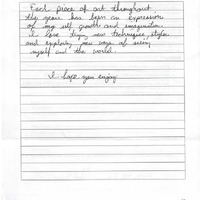 Each piece of art throughout
the years has been an expression
of my self growth and imagination.
I love trying new techniques, styles
and exploring new ways of seeing
myself and the world.
I hope you enjoy